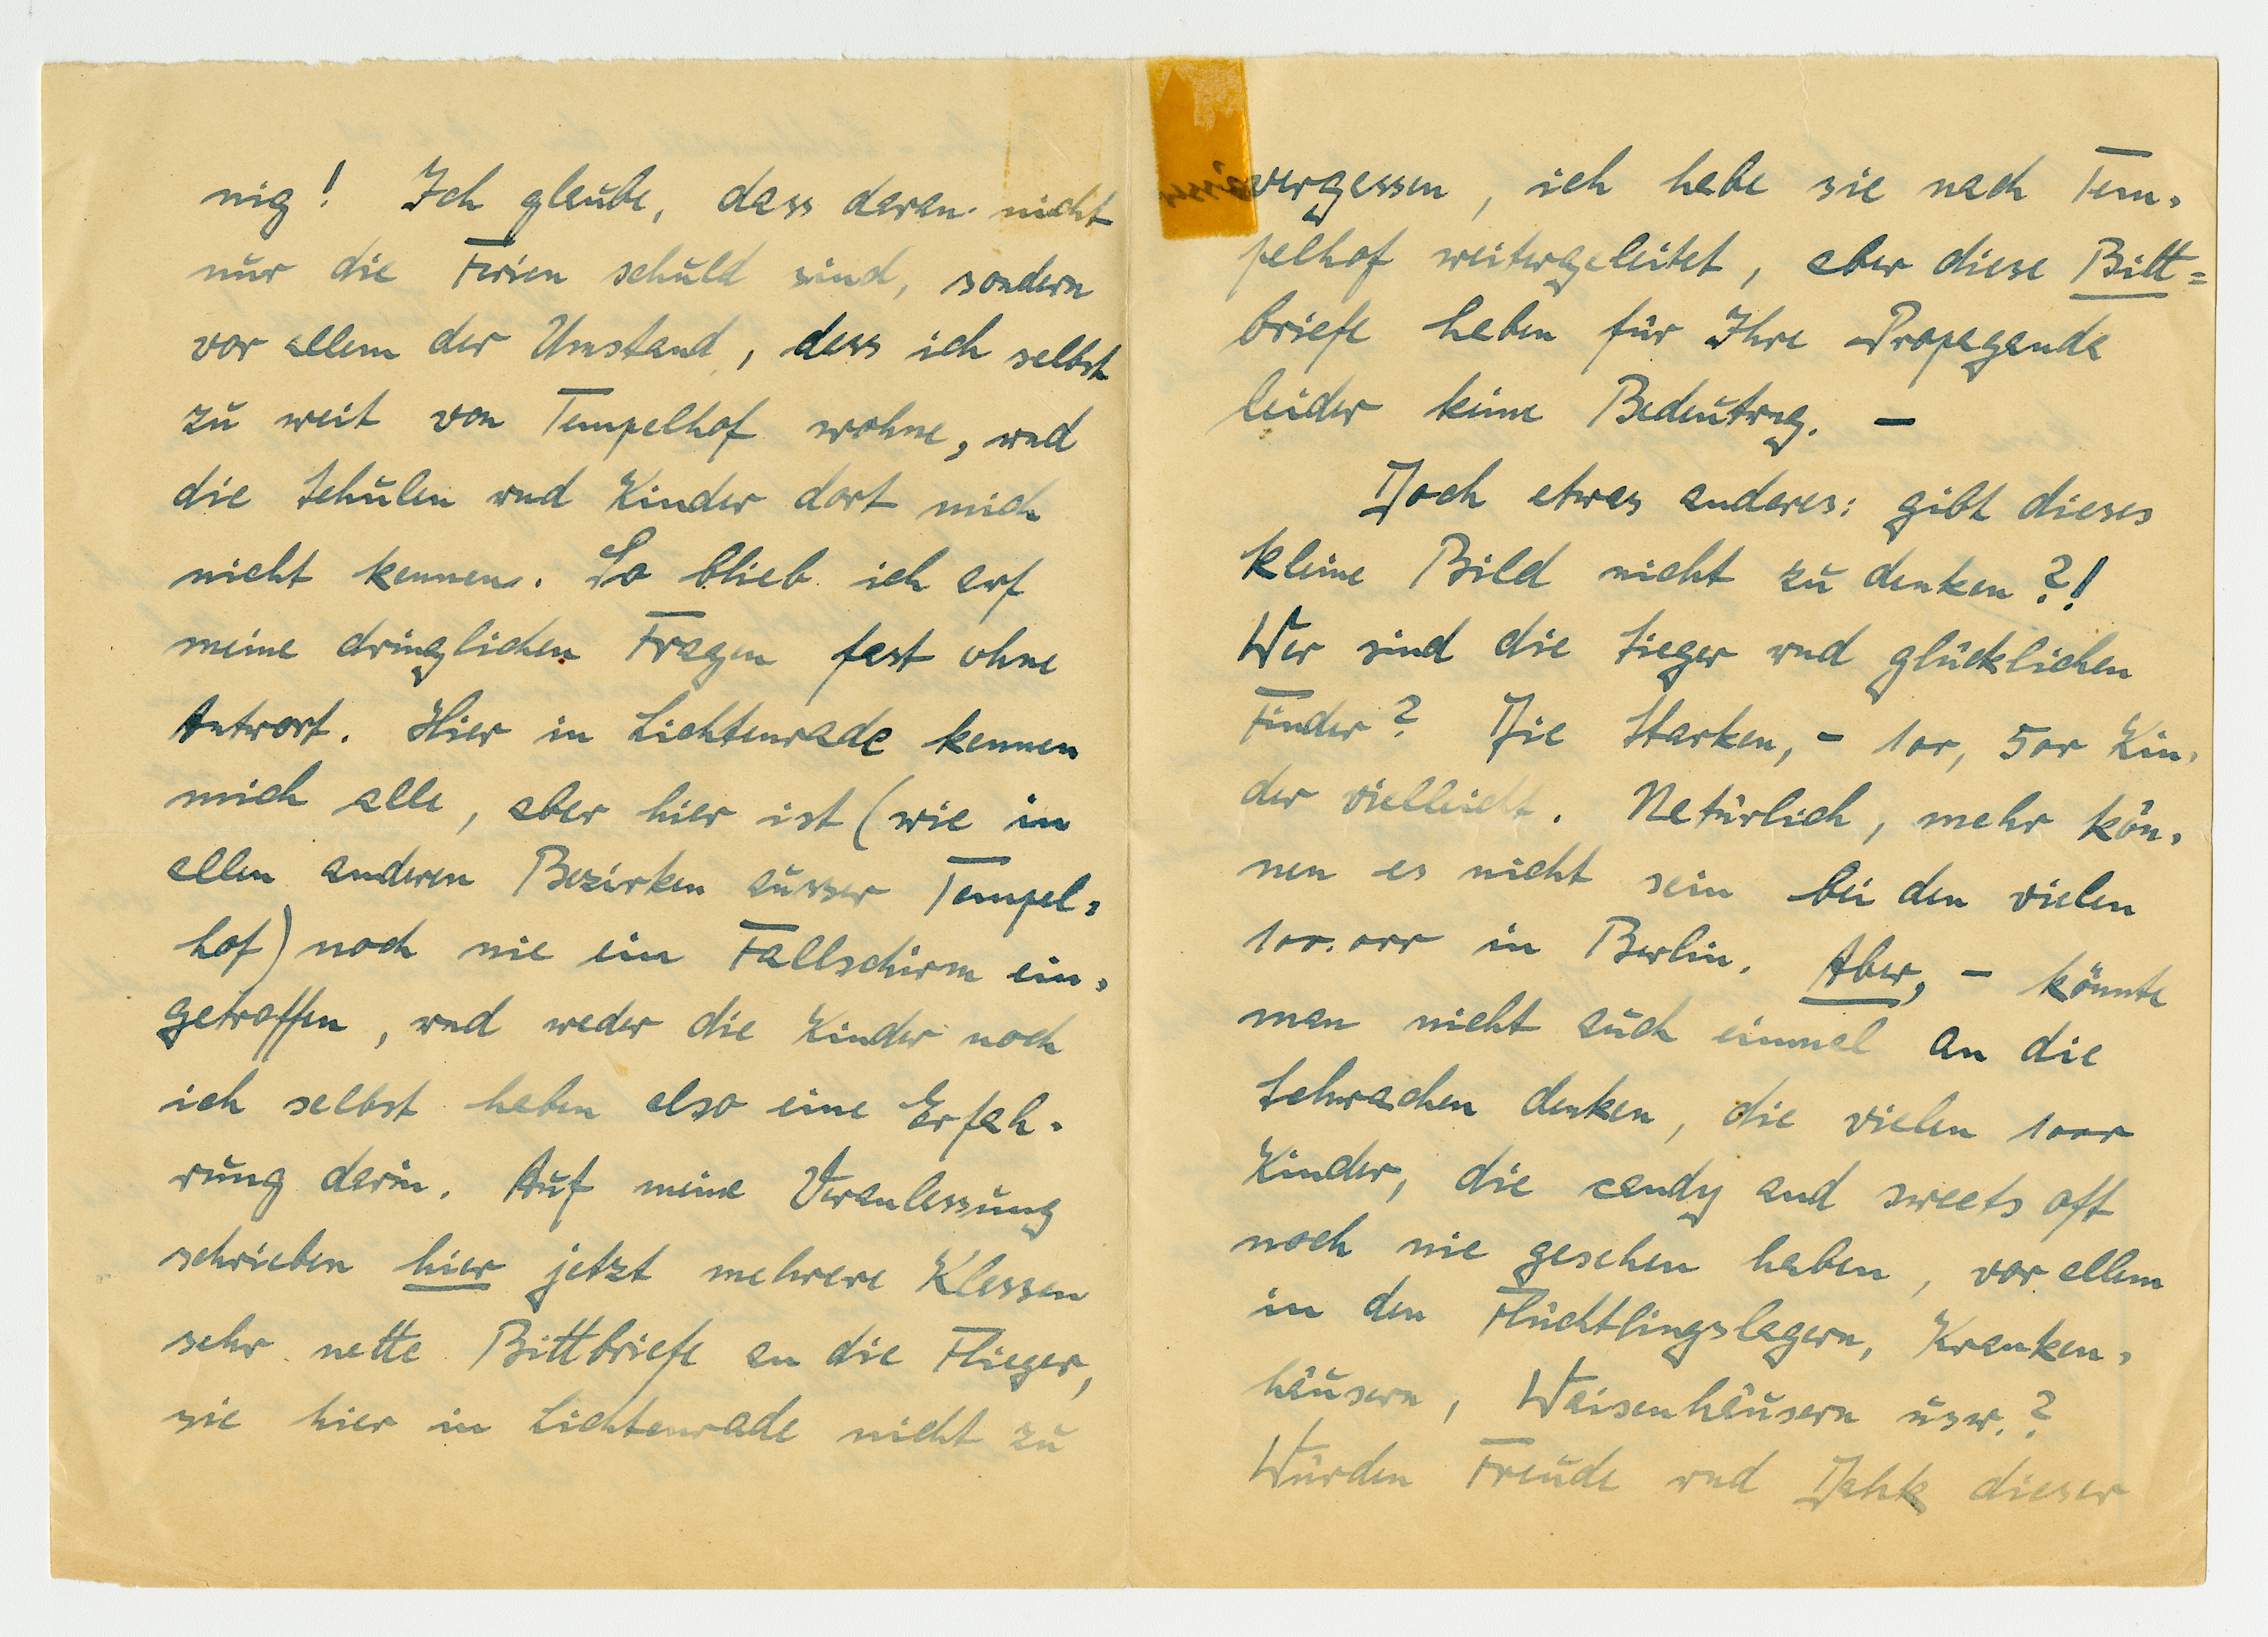 nig! Ich glaube, dass daran nicht
nur die Ferien schuld sind, sondern
vor allem der Umstand, dass ich selbst
zu weit von Tempelhof wohne, und
die Schulen und Kinder dort mich
nicht kennen. So blieb ich auf
meine dringlichen Fragen fast ohne
Antwort. Hier in Lichtenrade kennen
mich alle, aber hier ist (wie in
allen anderen Bezirken ausser Tempel-
hof) noch nie ein Fallschirm ein-
getroffen, und weder die Kinder noch
ich selbst haben also eine Erfah-
rung darin. Auf meine Veranlassung
schrieben hier jetzt mehrere Klassen
sehr nette Bittbriefe an die Flieger,
sie hier in Lichtenrade nicht zu
vergessen, ich habe sie nach Tem-
pelhof weitergeleitet, aber diese Bitt=
briefe haben für Ihre Propaganda
leider keine Bedeutung. —
Doch etwas anderes: gibt dieses
kleine Bild nicht zu denken?!
Wer sind die Sieger und glücklichen
Finder? Die Starken, - 100, 500 Kin-
der vielleicht. Natürlich, mehr kön-
nen es nicht sein bei den vielen
100.000 in Berlin. Aber, - könnte
man nicht auch einmal an die
Schwachen denken, die vielen 1000
Kinder, die candy and sweets oft
noch nie gesehen haben, vor allem
in den Flüchtlingslagern, Kranken-
häusern, Waisenhäusern usw.?
Würden Freude und Dank dieser